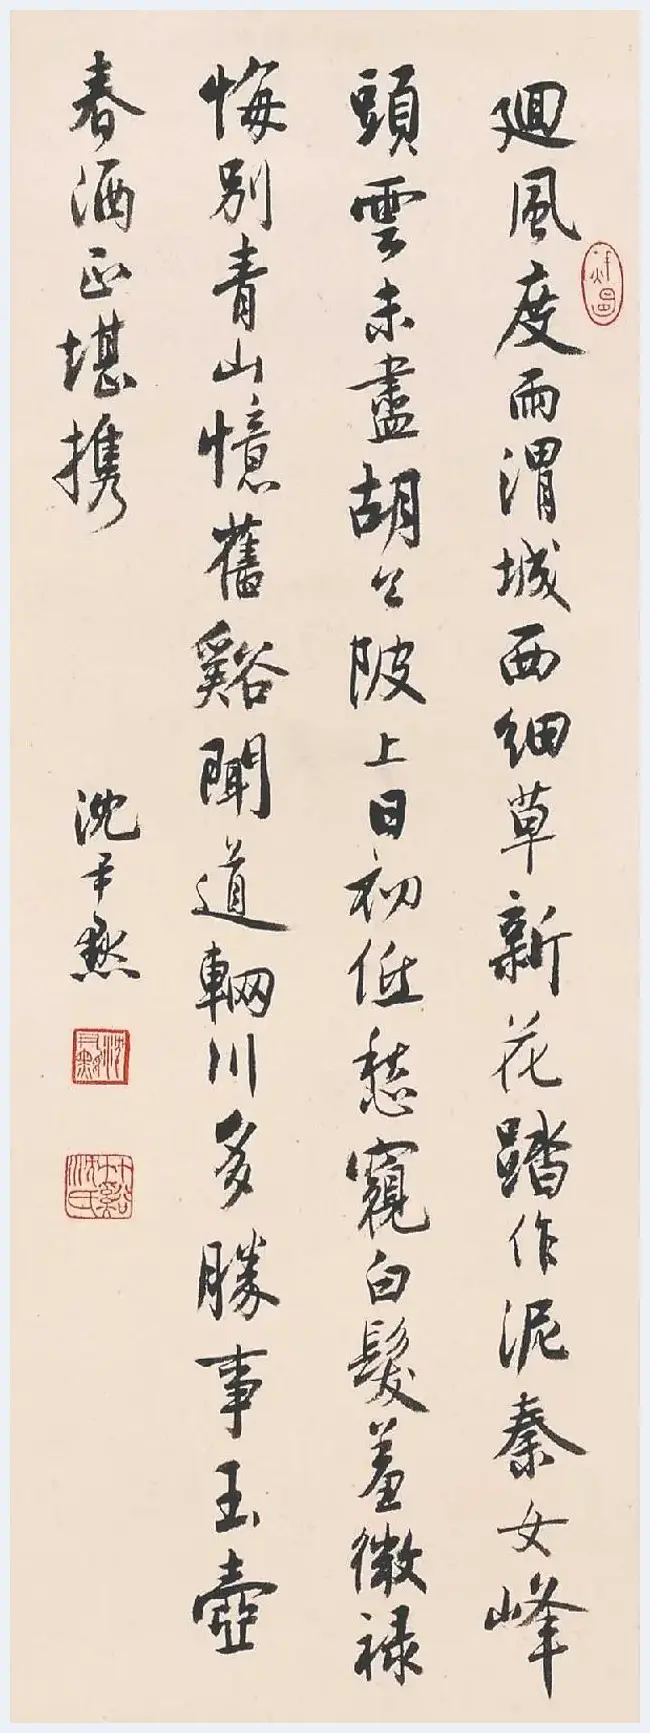 廻風度雨渭城西細草新花踏作泥秦女峰
頭雲未盡胡公陂上日初低愁窺白髮羞微祿
悔別青山憶舊谿聞道輞川多勝事玉壺
春酒正堪携
沈尹默
沈尹默
竹谿沈氏